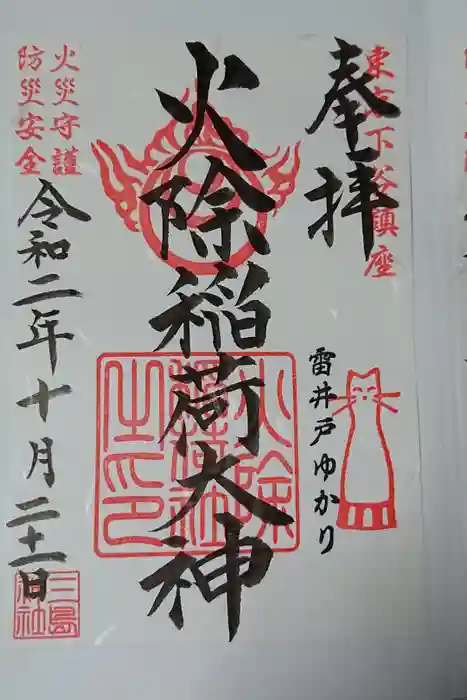 東京下谷鎮座
奉拝
雷井戸ゆかり
火除稲荷大神
火除
稲荷社
之印
火災守護
防災安全
令和二年十月二十一日
三島
神社